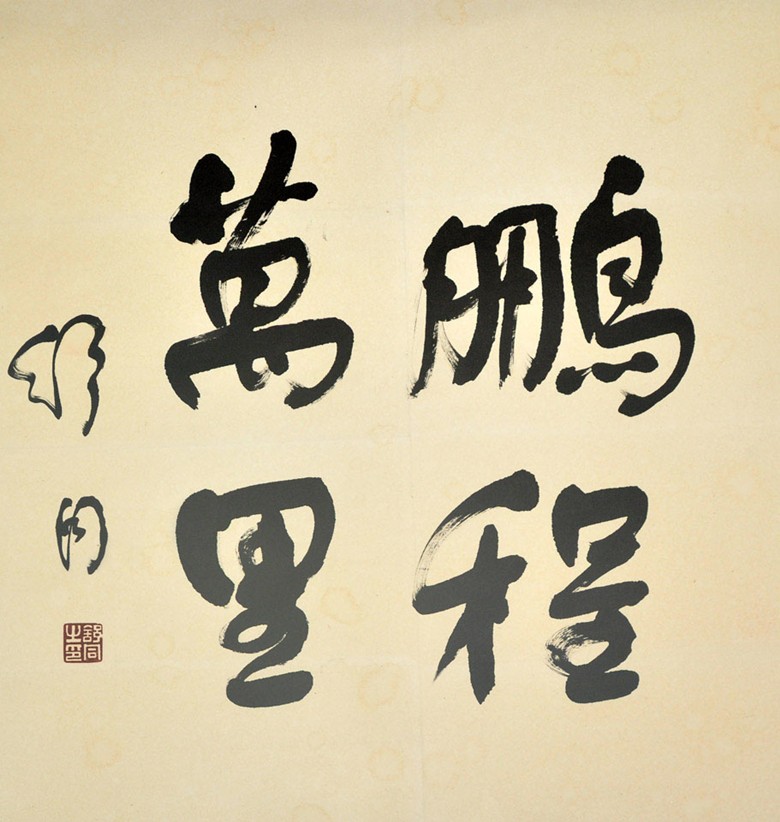 鹏程
萬里
舒同
舒同之印